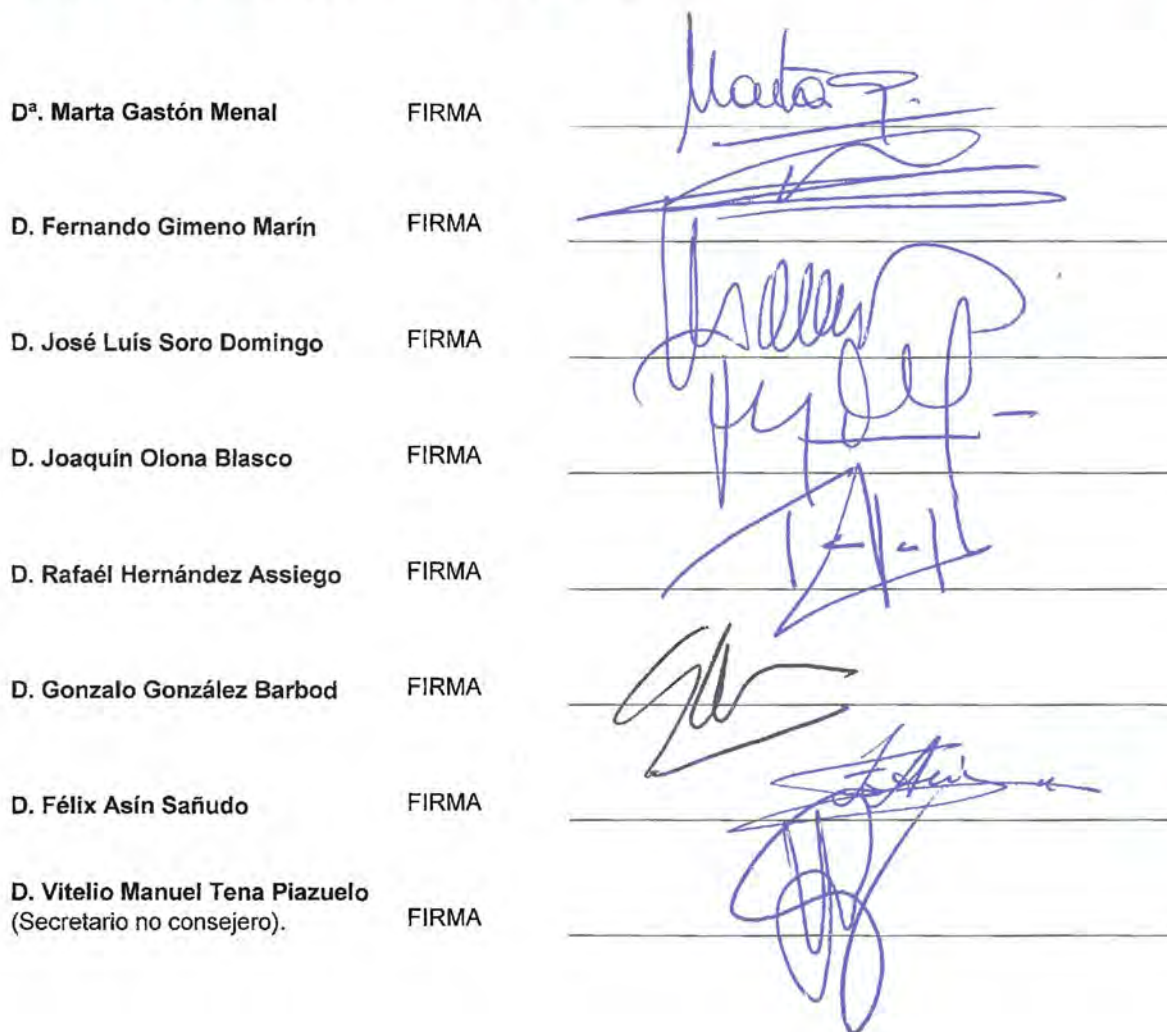 Dª. Marta Gastón Menal FIRMA Marta
D. Fernando Gimeno Marín FIRMA
D. José Luís Soro Domingo FIRMA
D. Joaquín Olona Blasco FIRMA
D. Rafaél Hernández Assiego FIRMA
D. Gonzalo González Barbod FIRMA
D. Félix Asín Sañudo FIRMA
D. Vitelio Manuel Tena Piazuelo
(Secretario no consejero). FIRMA